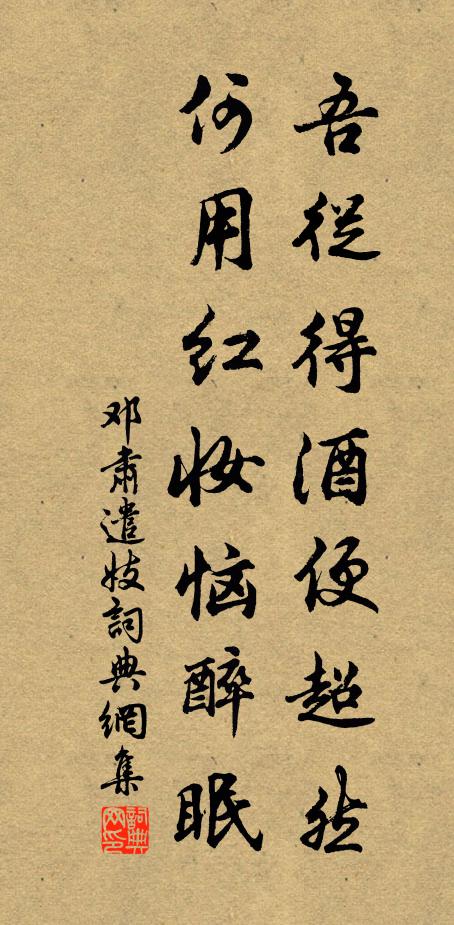 吾從得酒便超然
何用红妝恼醉眠
邓肅遣妓詞典網集
詞典网印